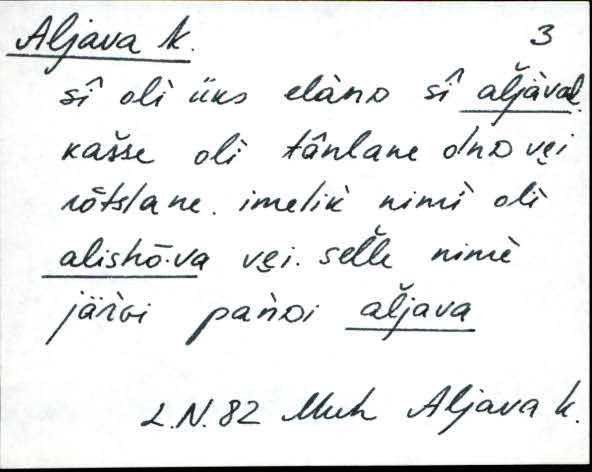 Aljava k. 3
sî olì üks elànᴅ sî al̆jàval.
kašse olì tânlane olnᴅ vẹi
rȭtslane. imelik̀ nimì olì
alishō·va vẹi. sell̆e nimè
jär̀ɢi pan̆nᴅi al̆java
L.N. 82 Muh Aljava k.